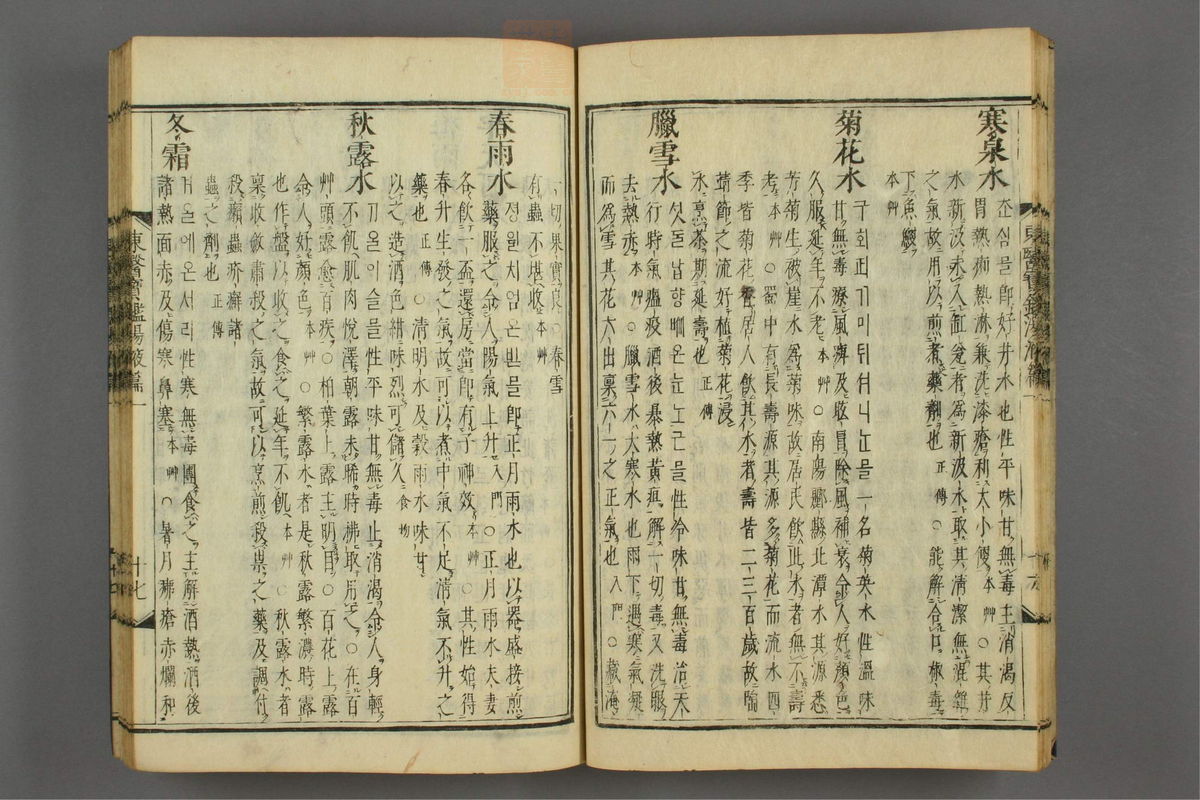 寒泉水
죠심믈即好井水也性平味甘無毒主消渴反
胃熱痢熱淋兼洗漆瘡利大小便本艸○其井
水新汲未入缸瓮者爲新汲水取其清潔無混雜
之氣故用以煎煮藥劑也正傳○能解合口椒毒
下魚鯁
本艸
菊花水
구화퍼기미틔셔나논믈一名菊英水性溫味
甘無毒療風痺及眩冒除風補衰令人好顔色
久服延年不老本艸○南陽酈縣北潭水其源悉
芳菊生被崖水爲菊味故居民飲此水者無不壽
考本艸○蜀中有長壽源其源多菊花而流水四
季皆菊花香居人飲其水者壽皆二三百歲故陶
靖節之流好植菊花浸
水烹茶期延壽也正傳
臘雪水
섯ᄃᆞᆯ납향ᄣᅢ온눈노근믈性冷味甘無毒治天
行時氣瘟疫酒後暴熱黄疸解一切毒又洗眼
去熱赤本艸○臘雪水大寒水也雨下遇寒氣凝
而爲雪其花六出禀六一之正氣也入門○藏淹
一切果實良○春雪
有蟲不堪收本艸
春雨水
졍월처엄온빈믈即正月雨水也以器盛接煎
藥服之令人陽氣上升入門○正月雨水夫妻
各飲一盃還房當即有子神效本艸○其性始得
春升生發之氣故可以煮中氣不足清氣不升之
藥也正傳○清明水及穀雨水味甘
以之造酒色紺味烈可儲久食物
秋露水
ᄀᆞᄋᆞᆯ이슬믈性平味甘無毒止消渴令人身輕
不飢肌肉悅澤朝露未晞時拂取用之○在百
艸頭露愈百疾○柏葉上露主明目○百花上露
令人好顔色本艸○繁露水者是秋露繁濃時露
也作盤以收之食之延年不飢本艸○秋露水者
禀收斂肅殺之氣故可以烹煎殺祟之藥及調付
殺癩蟲疥癬諸
蟲之劑也正傳
冬霜
겨ᄋᆞᆯ에온서리性寒無毒團食之主解酒熱酒後
諸熱面赤及傷寒鼻塞本艸○暑月疿瘡赤爛和
東醫寶鑑湯液篇一
十七